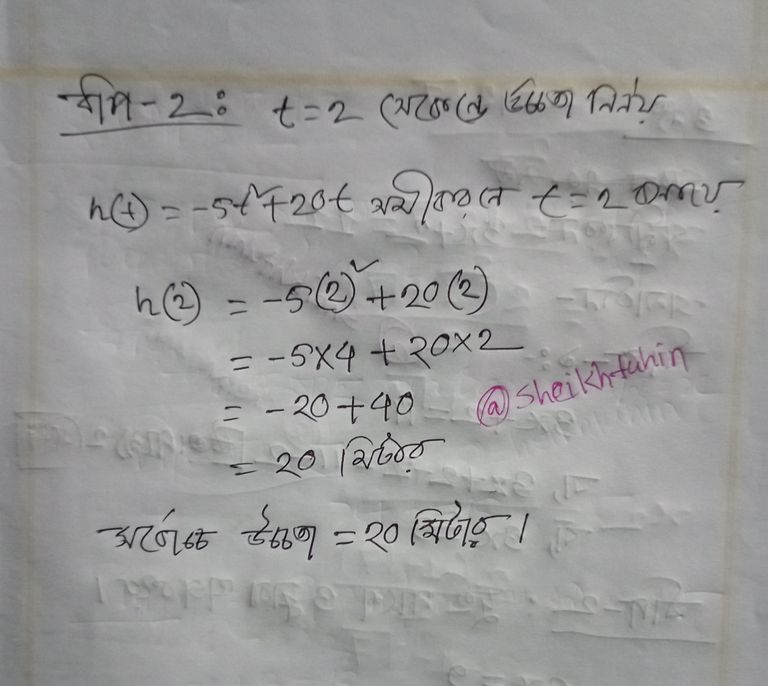 ধাপ-2: t=2 সেকেন্ডে উচ্চতা নির্ণয়
h(t) = -5t²+20t সমীকরণে t=2 বসায়
h(2) = -5(2)²+20(2)
= -5×4 + 20×2
= -20+40
@sheikhtuhin
= 20 মিটার
সর্বোচ্চ উচ্চতা = 20 মিটার।